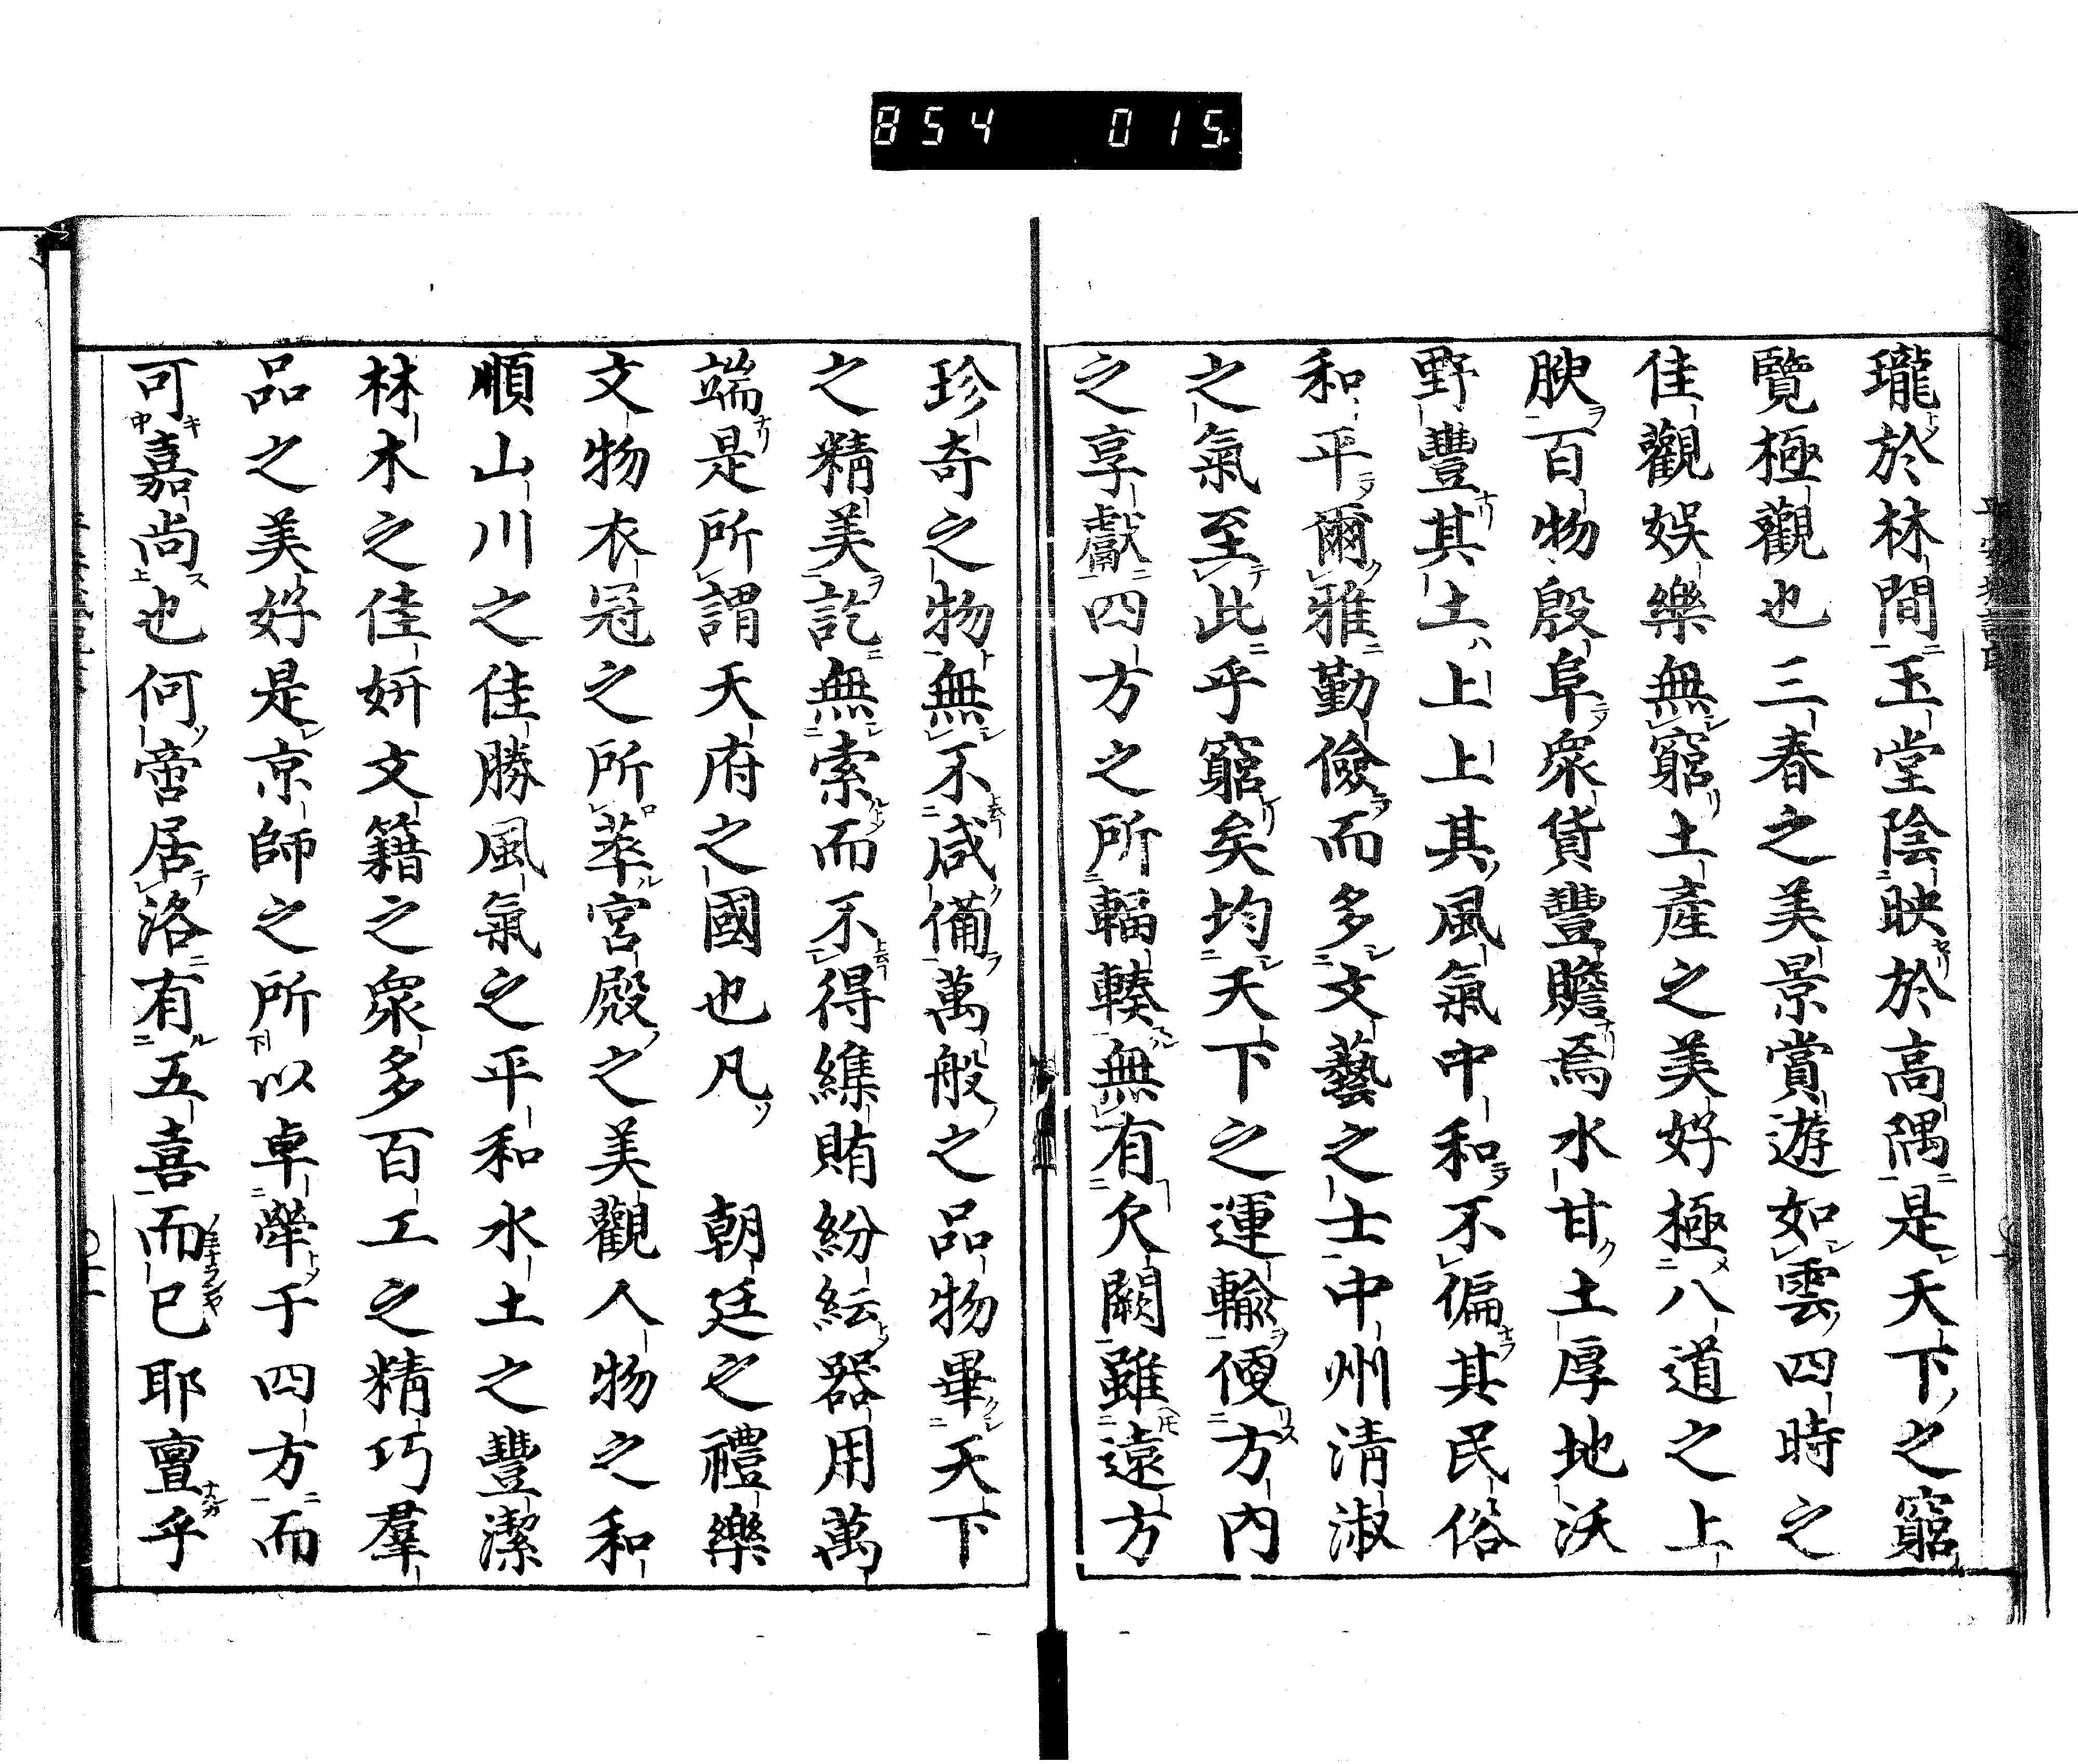 854 015
瓏於林間玉堂陰映於高隅是天下之窮
覽極觀也三春之美景賞遊如雲四時之
佳觀娯樂無窮土產之美好極八道之上
腴百物殷阜衆貨豐贍焉水甘土厚地沃
野豐其土上上其風氣中和不偏其民俗
和平爾雅勤儉而多文藝之士中州清淑
之氣至此乎窮矣均天下之運輸便方內
之享獻四方之所輻輳無有欠闕雖遠方
珍奇之物無不咸備萬般之品物畢天下
之精美訖無索而不得纏賄紛紜器用萬
端是所謂天府之國也凡　朝廷之禮樂
文物衣冠之所萃宮殿之美觀人物之和
順山川之佳勝風氣之平和水土之豐潔
林木之佳妍文籍之衆多百工之精巧羣
品之美好是京師之所以卓犖于四方而
可嘉尚也何啻居洛有五喜而已耶亶乎